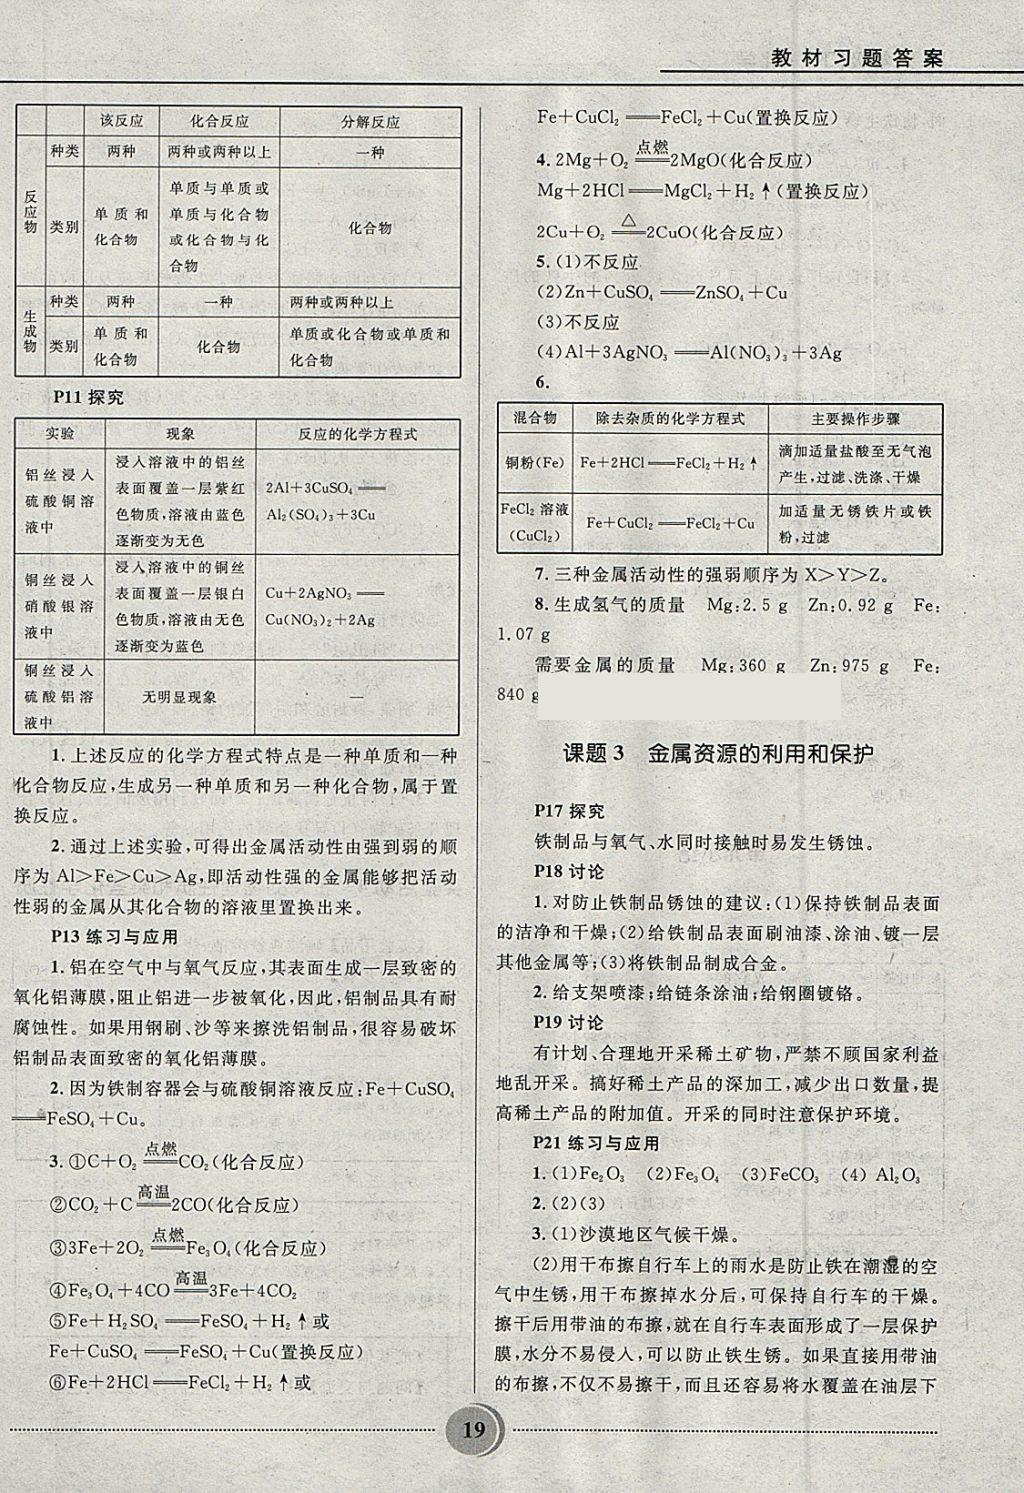 教材习题答案
该反应 化合反应 分解反应
反应物 种类 两种 两种或两种以上 一种
类别 单质和化合物 单质与单质或单质与化合物或化合物与化合物 化合物
生成物 种类 两种 一种 两种或两种以上
类别 单质和化合物 化合物 单质或化合物或单质和化合物
P11 探究
实验 现象 反应的化学方程式
铝丝浸入硫酸铜溶液中 浸入溶液中的铝丝表面覆盖一层紫红色物质,溶液由蓝色逐渐变为无色 2Al+3CuSO₄══Al₂(SO₄)₃+3Cu
铜丝浸入硝酸银溶液中 浸入溶液中的铜丝表面覆盖一层银白色物质,溶液由无色逐渐变为蓝色 Cu+2AgNO₃══Cu(NO₃)₂+2Ag
铜丝浸入硫酸铝溶液中 无明显现象 —
1.上述反应的化学方程式特点是一种单质和一种
化合物反应,生成另一种单质和另一种化合物,属于置
换反应。
2.通过上述实验,可得出金属活动性由强到弱的顺
序为 Al>Fe>Cu>Ag,即活动性强的金属能够把活动
性弱的金属从其化合物的溶液里置换出来。
P13 练习与应用
1.铝在空气中与氧气反应,其表面生成一层致密的
氧化铝薄膜,阻止铝进一步被氧化,因此,铝制品具有耐
腐蚀性。如果用钢刷、沙等来擦洗铝制品,很容易破坏
铝制品表面致密的氧化铝薄膜。
2.因为铁制容器会与硫酸铜溶液反应:Fe+CuSO₄
══FeSO₄+Cu。
3.①C+O₂ 点燃══CO₂(化合反应)
②CO₂+C 高温══2CO(化合反应)
③3Fe+2O₂ 点燃══Fe₃O₄(化合反应)
④Fe₃O₄+4CO 高温══3Fe+4CO₂
⑤Fe+H₂SO₄══FeSO₄+H₂↑或
Fe+CuSO₄══FeSO₄+Cu(置换反应)
⑥Fe+2HCl══FeCl₂+H₂↑或
Fe+CuCl₂══FeCl₂+Cu(置换反应)
4.2Mg+O₂ 点燃══2MgO(化合反应)
Mg+2HCl══MgCl₂+H₂↑(置换反应)
2Cu+O₂ △══2CuO(化合反应)
5.(1)不反应
(2)Zn+CuSO₄══ZnSO₄+Cu
(3)不反应
(4)Al+3AgNO₃══Al(NO₃)₃+3Ag
6.
混合物 除去杂质的化学方程式 主要操作步骤
铜粉(Fe) Fe+2HCl══FeCl₂+H₂↑ 滴加适量盐酸至无气泡产生,过滤、洗涤、干燥
FeCl₂溶液(CuCl₂) Fe+CuCl₂══FeCl₂+Cu 加适量无锈铁片或铁粉,过滤
7.三种金属活动性的强弱顺序为 X>Y>Z。
8.生成氢气的质量 Mg:2.5 g Zn:0.92 g Fe:
1.07 g
需要金属的质量 Mg:360 g Zn:975 g Fe:
840 g
课题 3 金属资源的利用和保护
P17 探究
铁制品与氧气、水同时接触时易发生锈蚀。
P18 讨论
1.对防止铁制品锈蚀的建议:(1)保持铁制品表面
的洁净和干燥;(2)给铁制品表面刷油漆、涂油、镀一层
其他金属等;(3)将铁制品制成合金。
2.给支架喷漆;给链条涂油;给钢圈镀铬。
P19 讨论
有计划、合理地开采稀土矿物,严禁不顾国家利益
地乱开采。搞好稀土产品的深加工,减少出口数量,提
高稀土产品的附加值。开采的同时注意保护环境。
P21 练习与应用
1.(1)Fe₂O₃ (2)Fe₃O₄ (3)FeCO₃ (4)Al₂O₃
2.(2)(3)
3.(1)沙漠地区气候干燥。
(2)用干布擦自行车上的雨水是防止铁在潮湿的空
气中生锈,用干布擦掉水分后,可保持自行车的干燥。
擦干后用带油的布擦,就在自行车表面形成了一层保护
膜,水分不易侵入,可以防止铁生锈。如果直接用带油
的布擦,不仅不易擦干,而且还容易将水覆盖在油层下
19